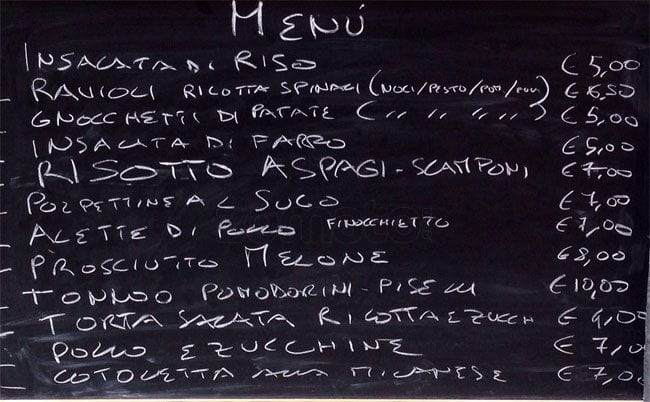 MENÚ
INSALATA DI RISO € 5,00
RAVIOLI RICOTTA SPINACI (NOCI/PESTO/POM/ € 6,50
GNOCCHETTI DI PATATE ( " " " " ) € 5,00
INSALATA DI FARRO € 5,00
RISOTTO ASPAGI-SCAMPONI € 7,00
POLPETTINE AL SUGO € 7,00
ALETTE DI POLLO FINOCCHIETTO € 7,00
PROSCIUTTO MELONE € 8,00
TONNO POMODORINI-PISELLI € 10,00
TORTA SALATA RICOTTA E ZUCCH € 4,00
POLLO E ZUCCHINE € 7,0
COTOLETTA ALLA MILANESE € 7,0